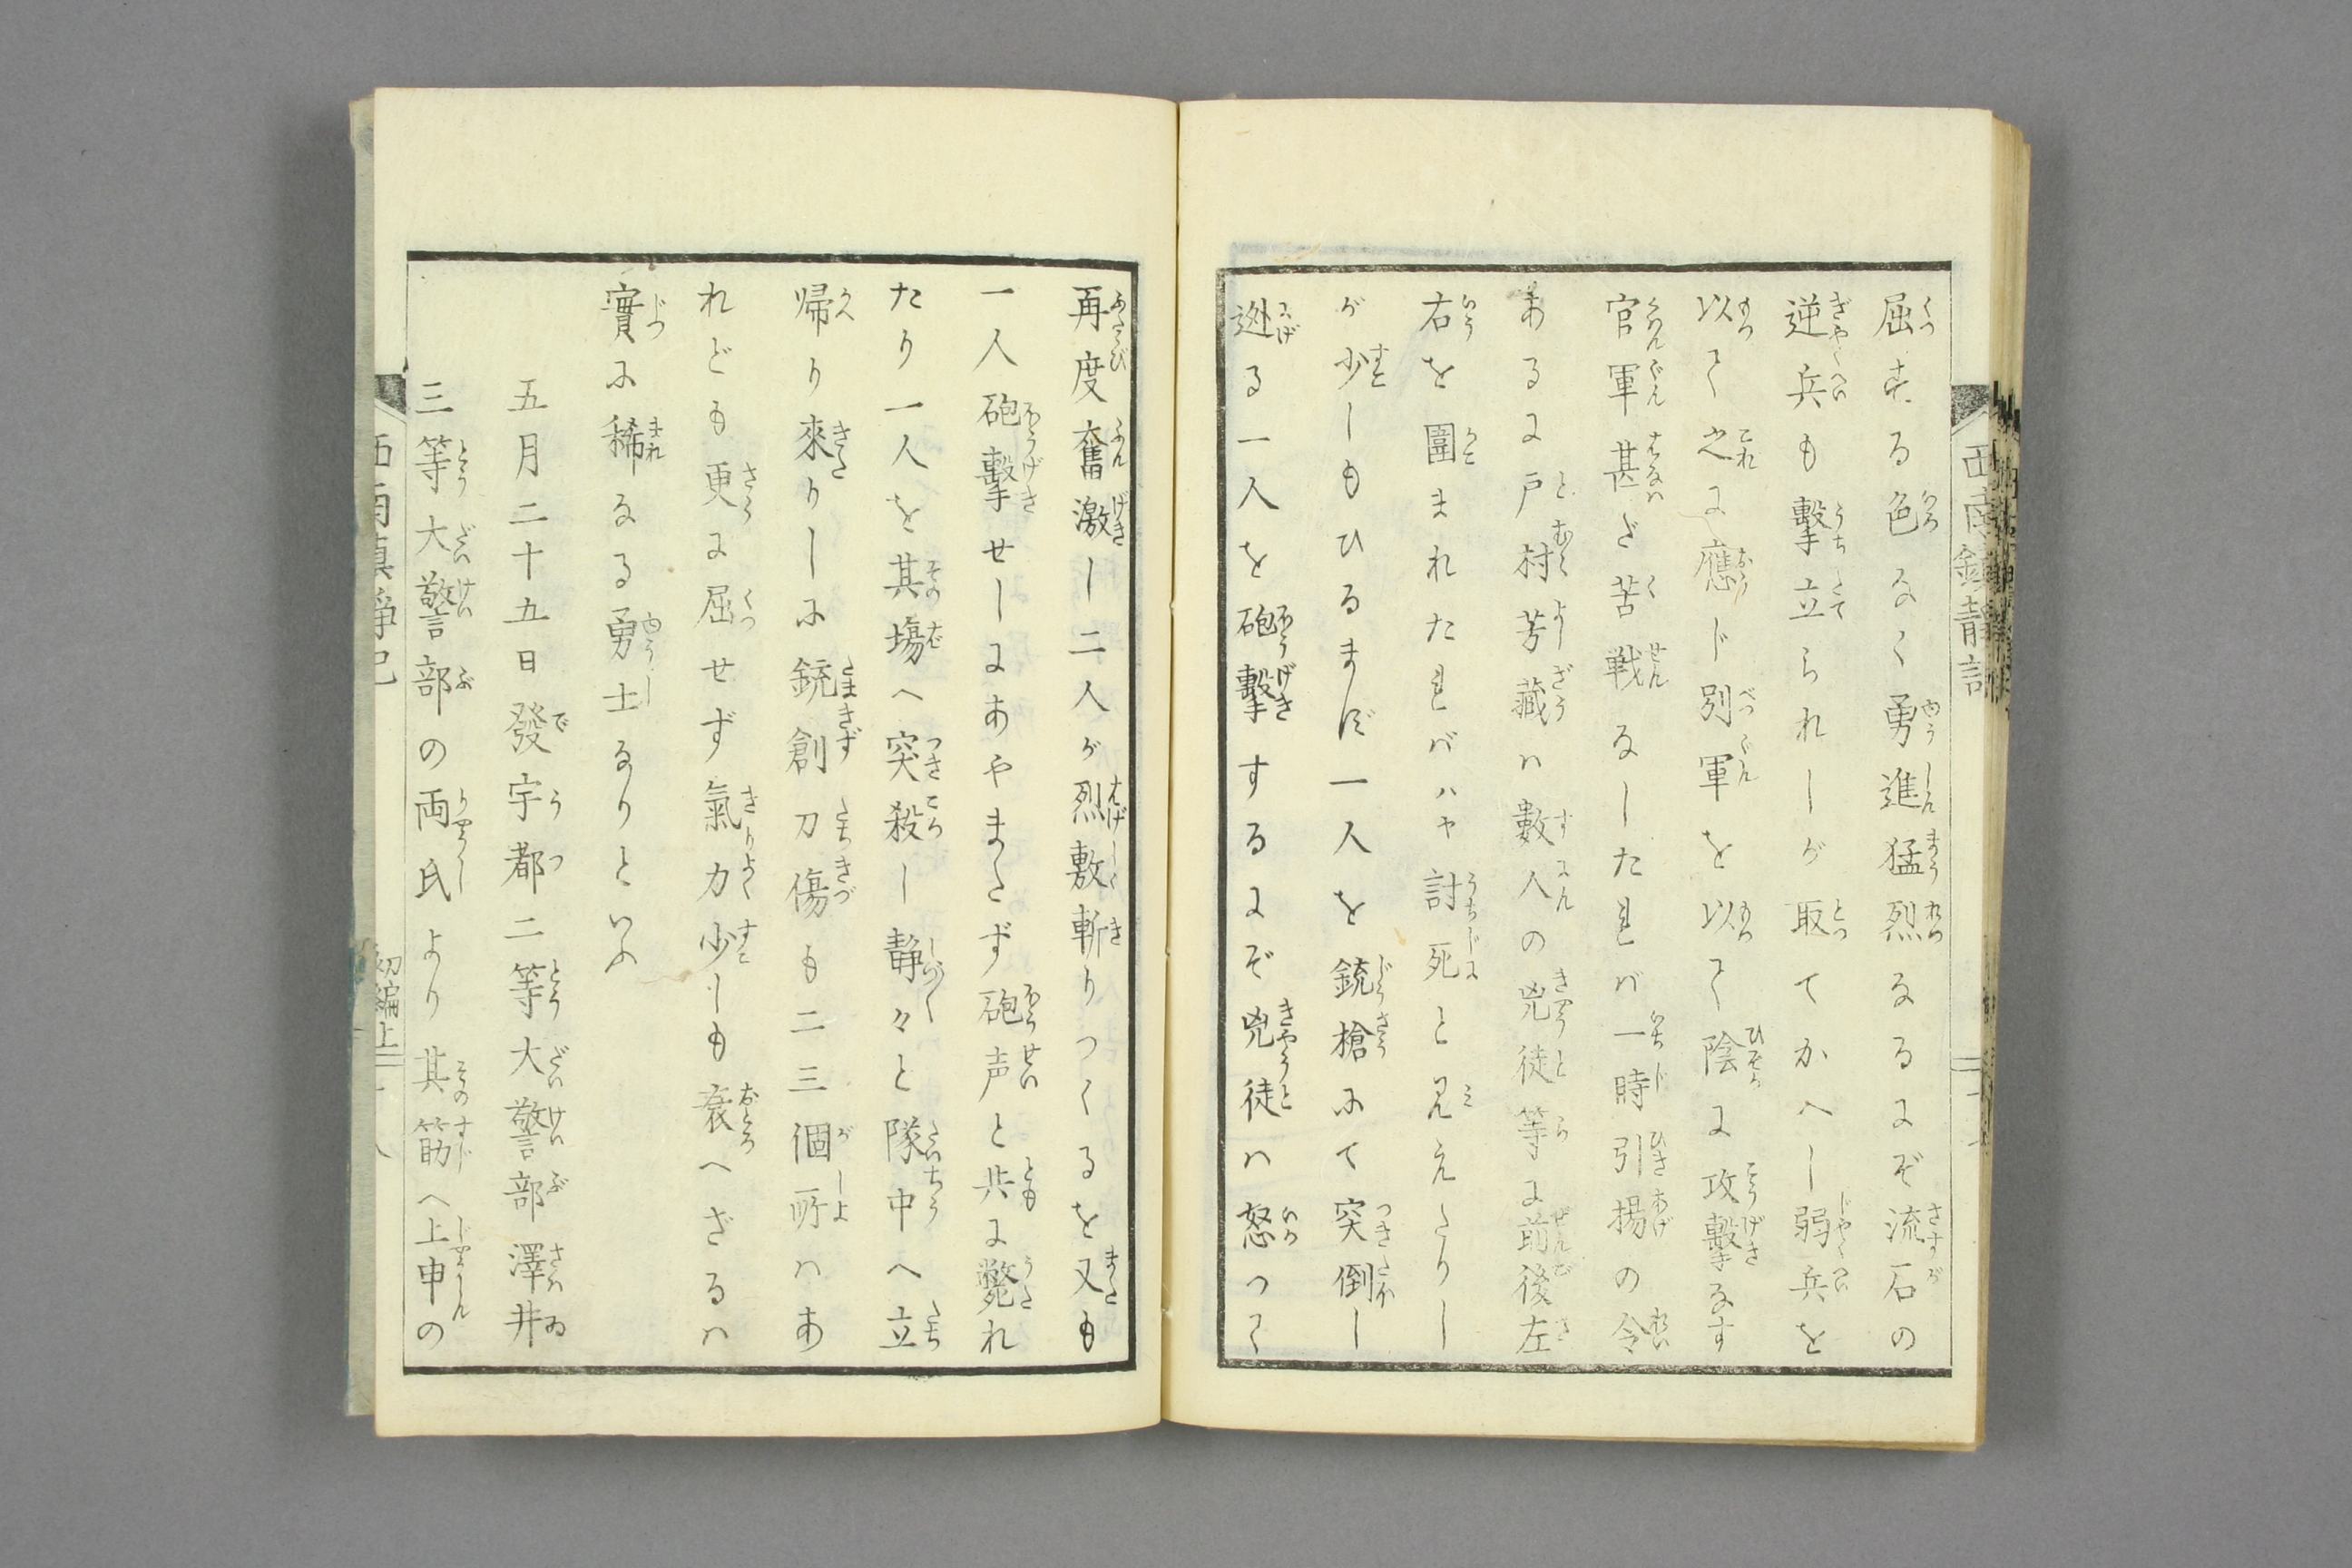 屈する色なく勇進猛烈なるにぞ流石の
逆兵も擊立られしが取てかへし弱兵を
以て之に應じ別軍を以て陰に攻擊なす
官軍甚だ苦戦なしたれバ一時引揚の令
あるに戸村芳藏ハ數人の兇徒等に前後左
右を圍まれたれバハヤ討死と見えたりし
が少しもひるまず一人を銃槍にて突倒し
迯る一人を砲擊するにぞ兇徒ハ怒つて
再度奮激し二人が烈敷斬りつくるを又も
一人砲擊せしにあやまたず砲声と共に斃れ
たり一人を其塲へ突殺し静々と隊中へ立
帰り來りしに銃創刀傷も二三個所ハあ
れども更に屈せず氣力少しも衰へざるハ
實に稀なる勇士なりといふ
五月二十五日發宇都二等大警部澤井
三等大警部の両氏より其筋へ上申の
西南鎮静記
初編上